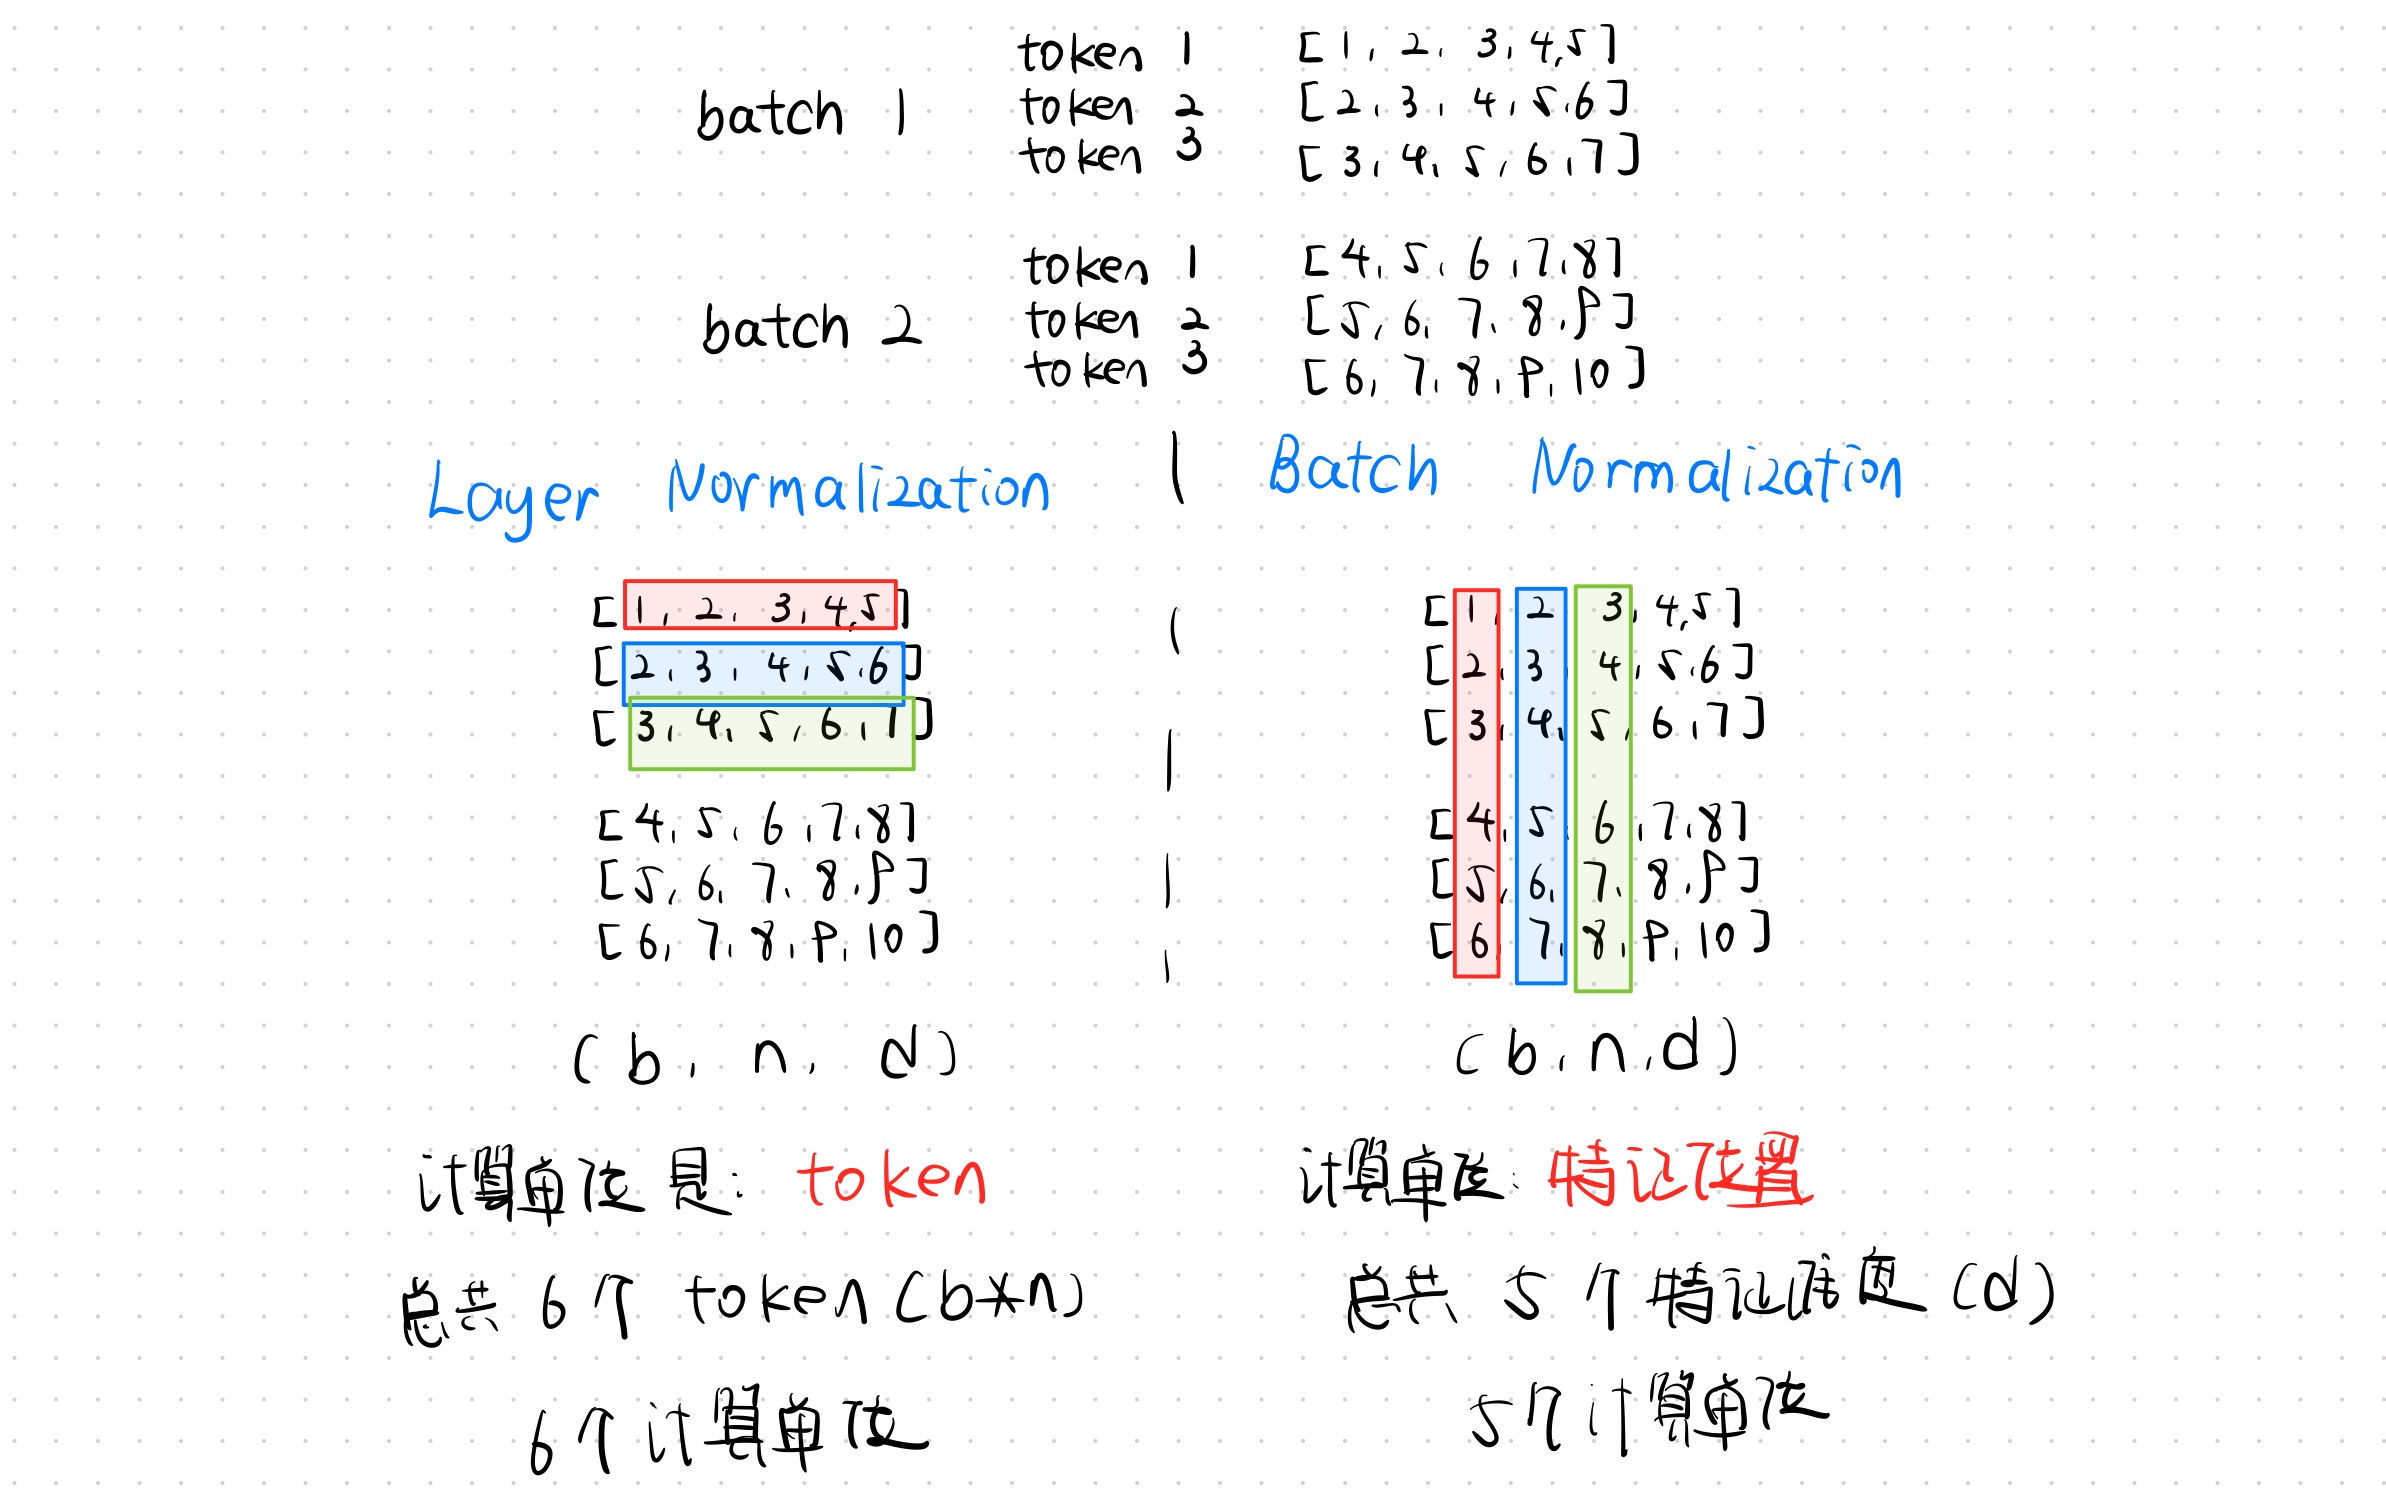 batch 1
token 1 [1, 2, 3, 4, 5]
token 2 [2, 3, 4, 5, 6]
token 3 [3, 4, 5, 6, 7]
batch 2
token 1 [4, 5, 6, 7, 8]
token 2 [5, 6, 7, 8, 9]
token 3 [6, 7, 8, 9, 10]
Layer Normalization
[1, 2, 3, 4, 5]
[2, 3, 4, 5, 6]
[3, 4, 5, 6, 7]
[4, 5, 6, 7, 8]
[5, 6, 7, 8, 9]
[6, 7, 8, 9, 10]
(b, n, d)
计算单位是: token
总共 6个 token (b*n)
6个计算单位
Batch Normalization
[1, 2, 3, 4, 5]
[2, 3, 4, 5, 6]
[3, 4, 5, 6, 7]
[4, 5, 6, 7, 8]
[5, 6, 7, 8, 9]
[6, 7, 8, 9, 10]
(b, n, d)
计算单位: 特记位置
总共 5个 (d)
5个计算单位